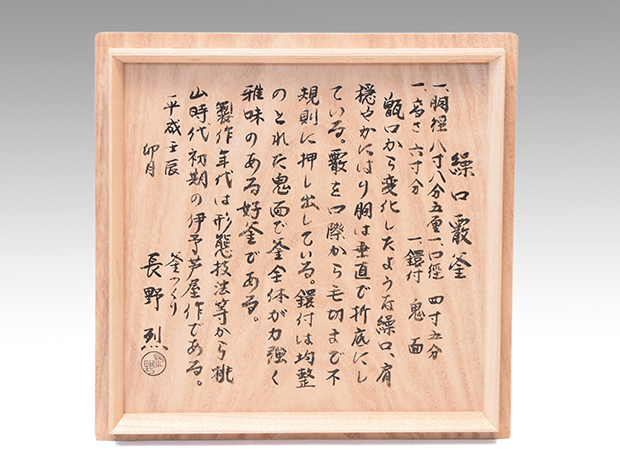 繰口霰釜
一、胴径 八寸八分五厘 一、口径 四寸五分
一、高さ 六寸分 一、鐶付 鬼面
甑口から変化したような繰口、肩
穏やかにはり胴は垂直で折底にし
ている。霰を口際から毛切まで不
規則に押し出している。鐶付は均整
のとれた鬼面で釜全体が力強く
雅味のある好釜である。
製作年代は形態技法等から桃
山時代初期の伊予芦屋作である。
平成壬辰 卯月
釜つくり
長野烈